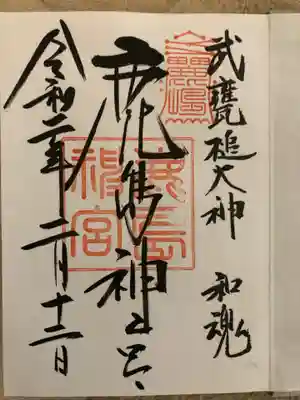 武甕槌大神 和魂
鹿島神宮
鹿島
神宮
令和二年二月十二日